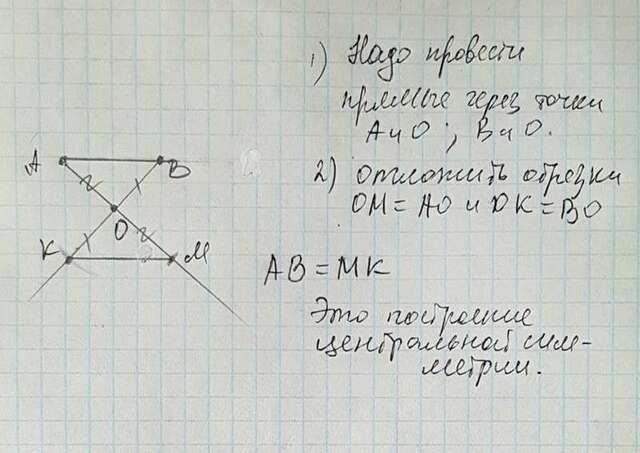 1) Надо провести
прямые через точки
А и О ; В и О.
2) отложить обрезки
ОМ = АО и ОК = ВО
А В
О
К М
АВ = МК
Это построение
центральной сим-
метрии.